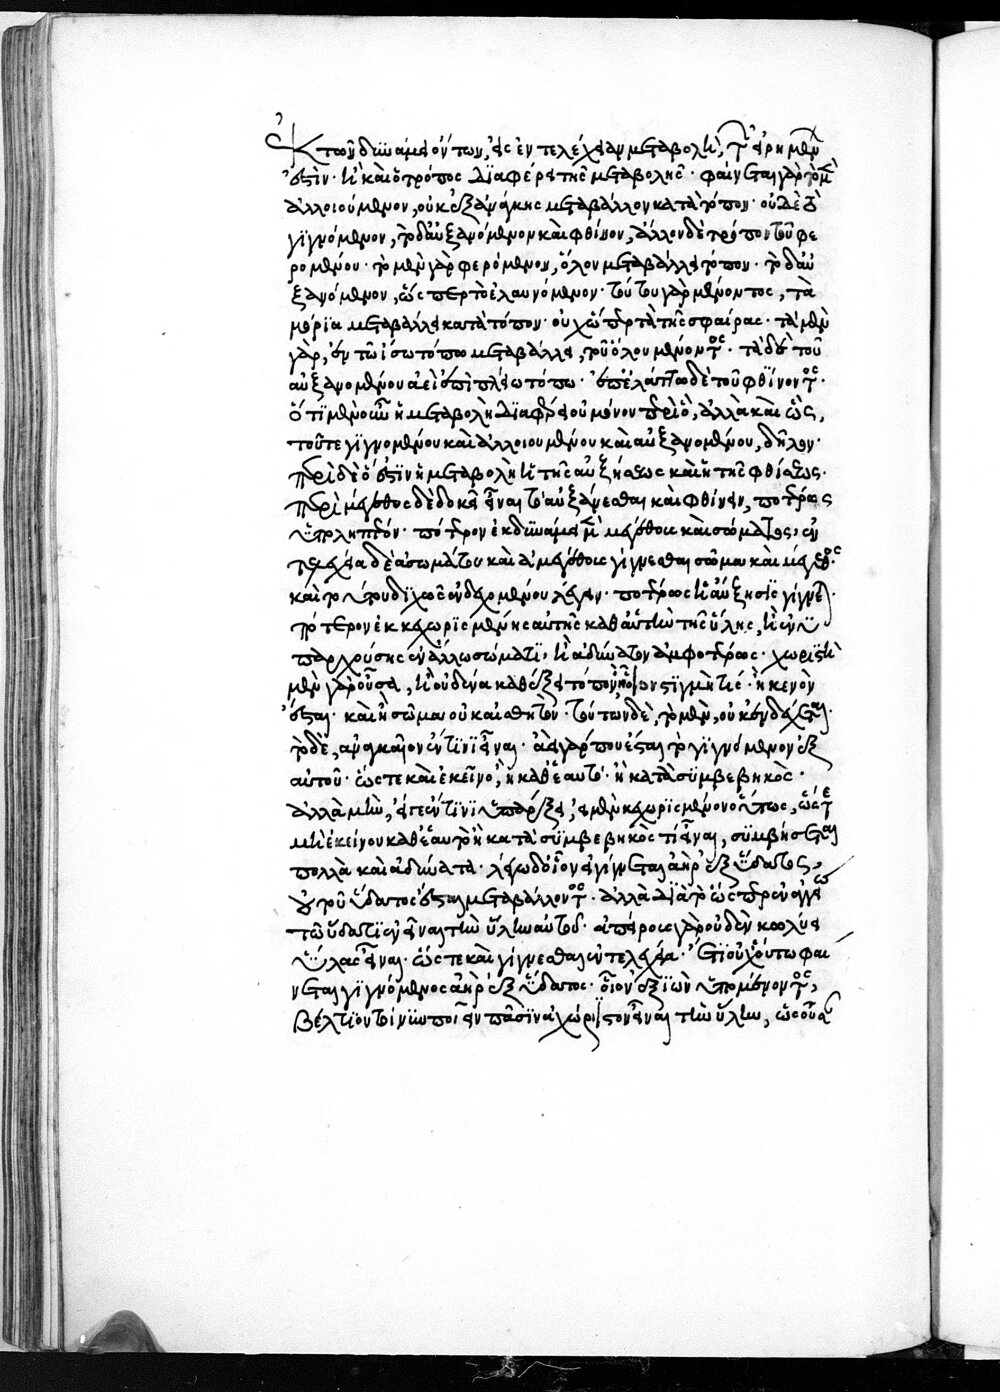 ἐκ τῶν δυνάμει ὄντων, εἰς ἐντελέχειαν μεταβολὴ, τῶν εἰρημένων
ἐστὶν· ἢ καὶ ὁ τρόπος διαφέρει τῆς μεταβολῆς· φαίνεται γὰρ τὸ μὲν
ἀλλοιούμενον, οὐκ ἐξ ἀνάγκης μεταβάλλον κατὰ τόπον· οὐδὲ τὸ
γιγνόμενον, τὸ δ' αὐξανόμενον καὶ φθίνον, ἄλλον δὲ τρόπον τοῦ φε
ρομένου· τὸ μὲν γὰρ φερόμενον, ὅλον μεταβάλλει τόπον· τὸ δ' αὐ
ξανόμενον, ὥσπερ τὸ ἐλαυνόμενον· τούτου γὰρ μένοντος, τὰ
μόρια μεταβάλλει κατὰ τόπον· οὐχ ὥσπερ τὰ τῆς σφαίρας· τὰ μὲν
γὰρ, ἐν τῶ ἴσω τόπω μεταβάλλει, τοῦ ὅλου μένοντος· τὰ δὲ τοῦ
αὐξανομένου ἀεὶ ἐπὶ πλείω τόπω· ἐπ' ἐλάττω δὲ τοῦ φθίνοντος·
ὅτι μὲν οὖν ἡ μεταβολὴ διαφέρει οὐ μόνον περὶ ὃ, ἀλλὰ καὶ ὡς,
τοῦ τε γιγνομένου καὶ ἀλλοιουμένου καὶ αὐξανομένου, δῆλον·
περὶ δὲ ὅ ἐστιν ἡ μεταβολὴ ἡ τῆς αὐξήσεως καὶ ἡ τῆς φθίσεως·
περὶ μέγεθος δὲ δοκεῖ εἶναι τὸ αὐξάνεσθαι καὶ φθίνειν, ποτέρως
ὑποληπτέον· πότερον ἐκ δυνάμει μὲν μεγέθους καὶ σώματος, ἐν
τελεχεία δὲ ἀσωμάτου καὶ ἀμεγέθους γίγνεσθαι σῶμα καὶ μέγεθος·
καὶ τούτου διχῶς ἐνδεχομένου λέγειν· ποτέρως ἡ αὔξησις γίγνεται·
πότερον ἐκ κεχωρισμένης αὐτῆς καθ' αὑτὴν τῆς ὕλης, ἢ ἐνυ
παρχούσης ἐν ἄλλω σώματι, ἢ ἀδύνατον ἀμφοτέρως· χωριστὴ
μὲν γὰρ οὖσα, ἢ οὐδένα καθέξει τόπον ἢ οἷον στιγμή τις· ἢ κενὸν
ἔσται· καὶ ἢ σῶμα οὐκ αἰσθητόν· τούτων δὲ, τὸ μὲν, οὐκ ἐνδέχεται·
τὸ δὲ, ἀναγκαῖον ἔν τινι εἶναι· ἀεὶ γάρ που ἔσται τὸ γιγνόμενον ἐξ
αὐτοῦ· ὥστε καὶ ἐκεῖνο, ἢ καθ' ἑαυτὸ· ἢ κατὰ συμβεβηκὸς·
ἀλλὰ μὴν, εἴτε ἔν τινι ὑπάρξει, εἰ μὲν κεχωρισμένον οὕτως, ὥστε
μὴ ἐκείνου καθ' ἑαυτὸ ἢ κατὰ συμβεβηκός τι εἶναι, συμβήσεται
πολλὰ καὶ ἀδύνατα· λέγω δ' οἷον εἰ γίγνεται ἀὴρ ἐξ ὕδατος,
οὐ τοῦ ὕδατος ἔσται μεταβάλλοντος· ἀλλὰ διὰ τὸ ὥσπερ ἐν ἀγγείω
τῶ ὕδατι ἐνεῖναι τὴν ὕλην αὐτοῦ· ἀπείρους γὰρ οὐδὲν κωλύει
ὕλας εἶναι· ὥστε καὶ γίγνεσθαι ἐντελεχεία· ἔτι οὐχ οὕτω φαί
νεται γιγνόμενος ἀὴρ ἐξ ὕδατος· οἷον ἐξιὼν ὑπομένοντος,
βέλτιον τοίνυν ποιεῖν πᾶσιν ἀχώριστον εἶναι τὴν ὕλην, ὡς οὖσαν